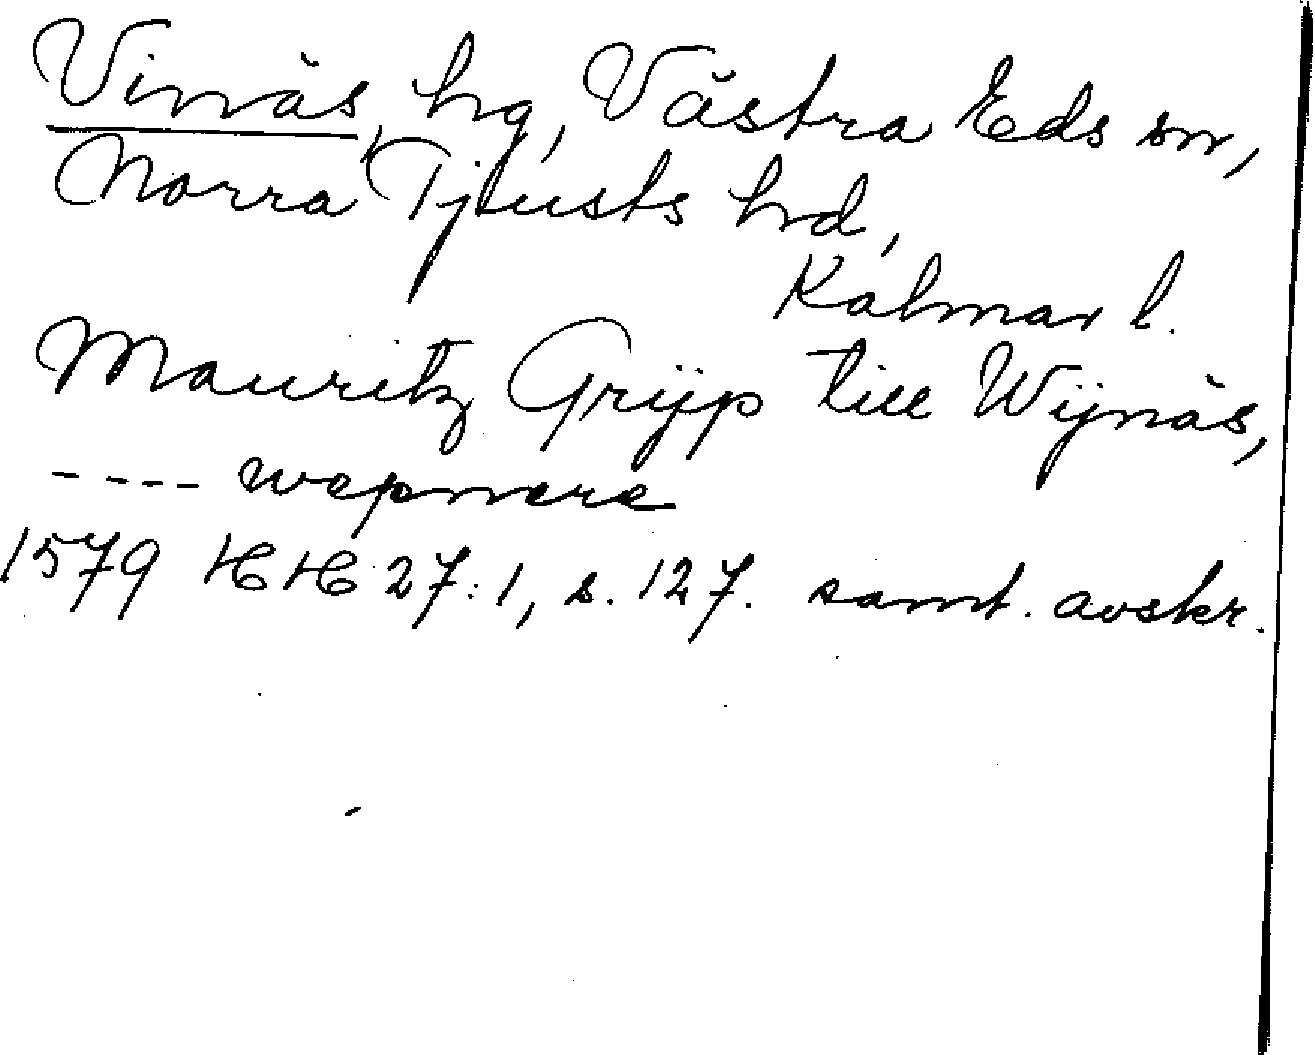 Vinäs, hg, Västra Eds sn,
Norra Tjusts hd,
Kalmar l.
Mauritz Gryp till Wijnäs,
---- wepnere
1579 HH 27:1, s. 127. samt. avskr.